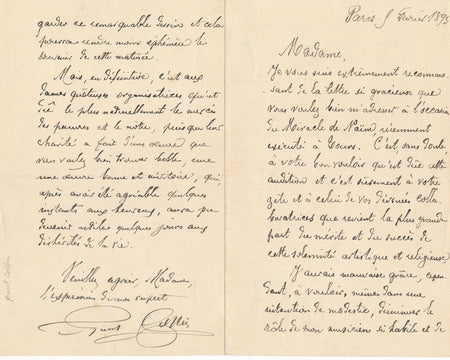 Paris 5 Février 1895
Madame,
Je vous suis extrêmement reconnais-
sant de la lettre si gracieuse que
vous voulez bien m'adresser à l'occasion
du Miracle de Naïm, récemment
exécuté à Tours. C'est sans doute
à votre bon vouloir qu'est due cette
audition et c'est sûrement à votre
zèle et à celui de vos dévouées colla-
boratrices que revient la plus grande
part du mérite et du succès de
cette solennité artistique et religieuse
J'aurais mauvaise grâce, cepen-
dant, à vouloir, même dans une
intention de modestie, diminuer le
rôle de mon musicien si habile et de
garder ce remarquable dessin et cela
pourra rendre moins éphémère le
souvenir de cette matinée.
Mais, en définitive, c'est aux
dames quêteuses organisatrices qu'est
dû le plus naturellement le merci
des pauvres et le nôtre, puisque leur
charité a fait d'une œuvre que
vous voulez bien trouver belle, une
une œuvre bonne et méritoire, qui
après avoir été agréable quelques
instants aux heureux, aura pu
devenir utile quelques jours aux
déshérités de la vie.
Veuillez agréer, Madame,
l'expression de mon respect
Paul Collin